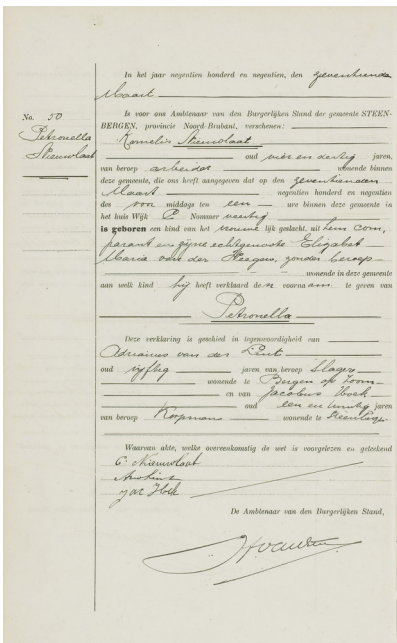 In het jaar negentien honderd en negentien, den zeventienden
Maart
No. 50
Petronella
Nieuwlaat
is voor ons Ambtenaar van den Burgerlijken Stand der gemeente STEEN-
BERGEN, provincie Noord-Brabant, verschenen:
Kornelis Nieuwlaat
oud vier en dertig jaren,
van beroep arbeider wonende binnen
deze gemeente, die ons heeft aangegeven dat op den zeventienden
Maart negentien honderd en negentien
des voor middags ten een ure binnen deze gemeente in
het huis Wijk P. Nommer veertig
is geboren een kind van het vrouwe lijk geslacht, uit hem com,
parant en zijne echtgenoote Elizabet
Maria van der zonder beroep
wonende in deze gemeente
aan welk kind hij heeft verklaard de n voornaam te geven van
Petronella
Deze verklaring is geschied in tegenwoordigheid van
Adrianus van der
oud vijftig jaren, van beroep Slager
wonende te Bergen op Zoom
en van Jacobus Hoek
oud een en twintig jaren
van beroep Koopman wonende te Steenbergen
Waarvan akte, welke overeenkomstig de wet is voorgelezen en geteekend
C. Nieuwlaat
Jac Hoek
De Ambtenaar van den Burgerlijken Stand,